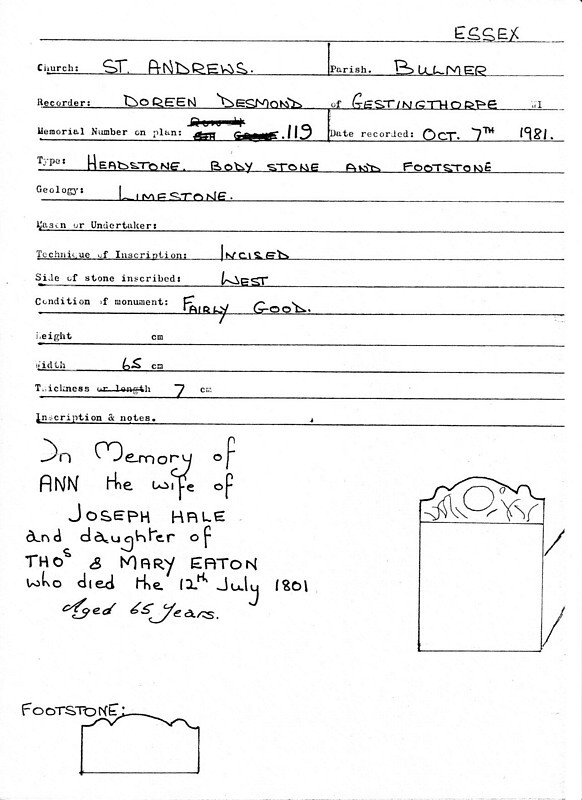 ESSEX
Church: ST. ANDREWS. Parish. BULMER
Recorder: DOREEN DESMOND of GESTINGTHORPE
Memorial Number on plan: 119 Date recorded: OCT. 7TH 1981.
Type: HEADSTONE. BODY STONE AND FOOTSTONE
Geology: LIMESTONE.
Mason or Undertaker:
Technique of Inscription: INCISED
Side of stone inscribed: WEST
Condition of monument: FAIRLY GOOD.
Height cm
Width 65 cm
Thickness or length 7 cm
Inscription & notes.
In Memory of
ANN the wife of
JOSEPH HALE
and daughter of
THOS & MARY EATON
who died the 12th July 1801
Aged 65 Years.
FOOTSTONE: